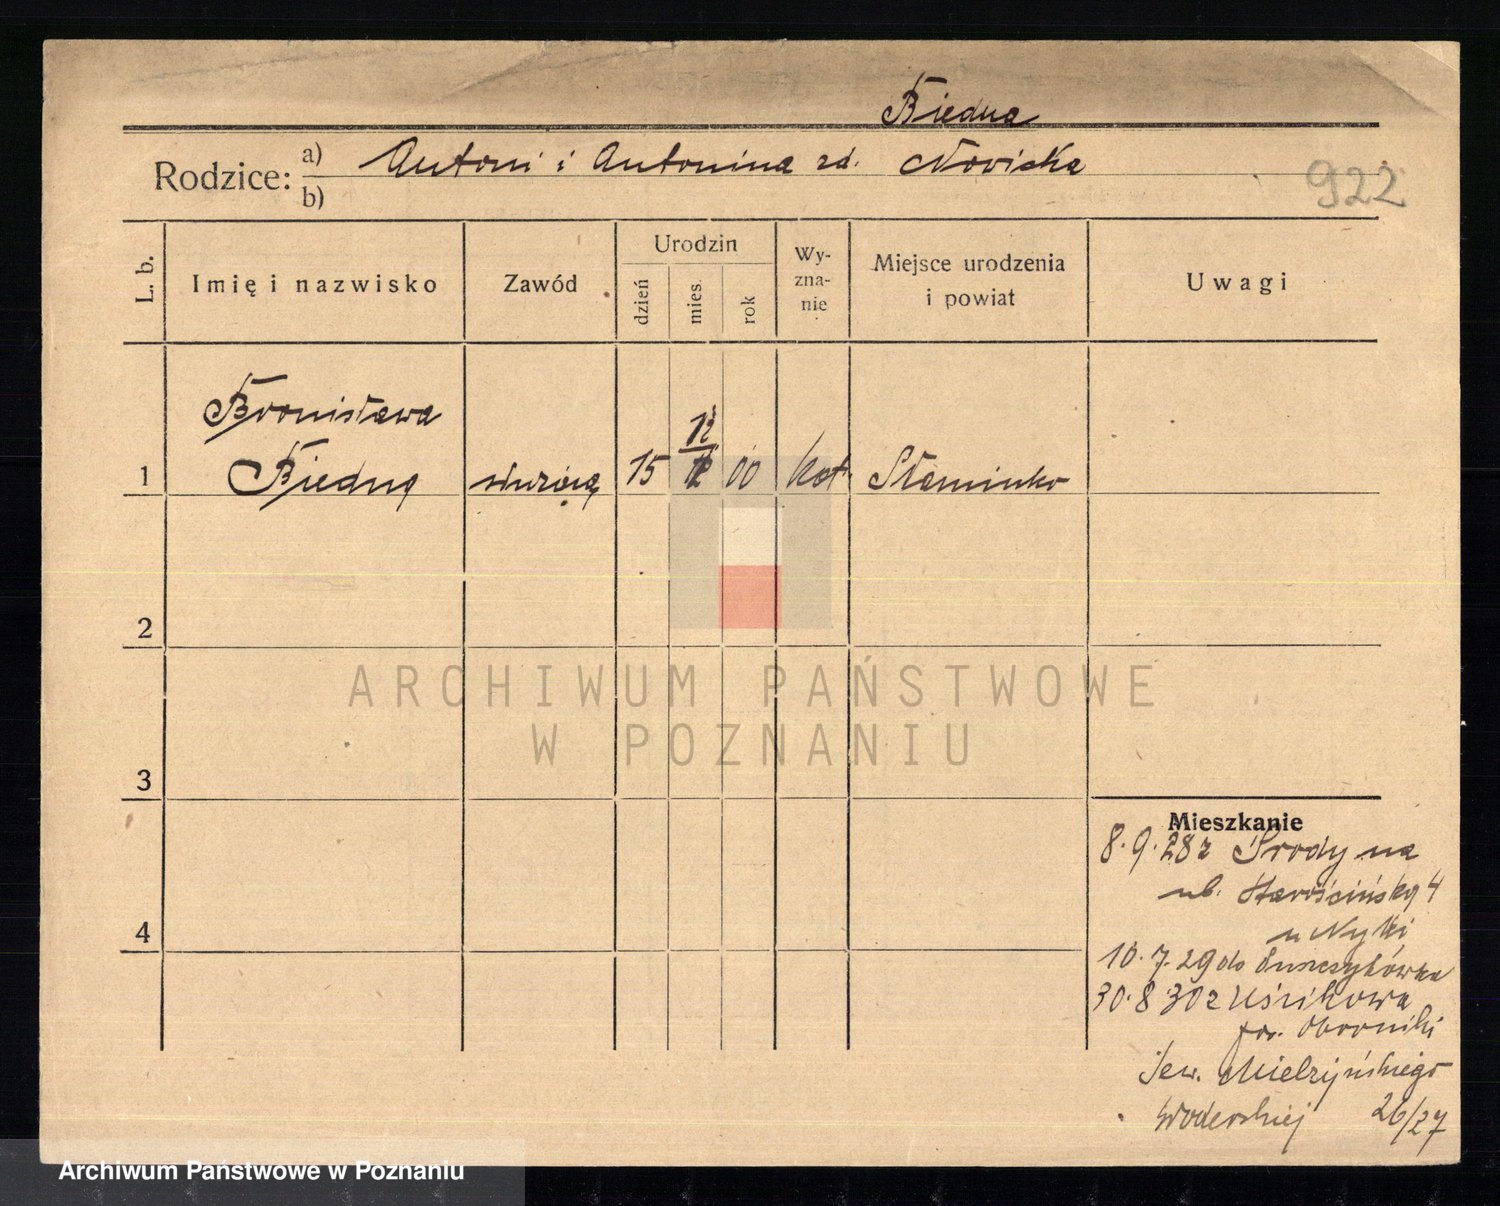 Biedna
Rodzice: a) Antoni i Antonina zd. Nowicka
b)
922
L. b. Imię i nazwisko Zawód Urodzin dzień mies. rok Wy-zna-nie Miejsce urodzenia i powiat Uwagi
Bronisława 12
1 Biedna służąca 15 12 00 kat. Słaminko
2
3
4
Mieszkanie
8.9.28 z Środy na
ul. Starościńską 4
u Nytki
10.7.29 do
30.8 30 z Uścikowa
pow. Oborniki
Sew. Mielżyńskiego
26/27
ARCHIWUM PAŃSTWOWE
W POZNANIU
Archiwum Państwowe w Poznaniu